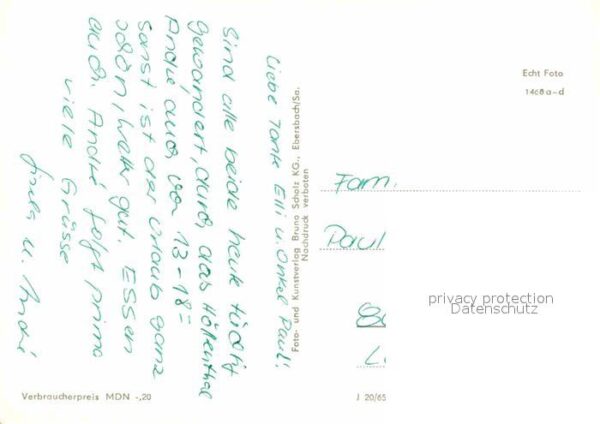 Liebe Tante Elli u. Onkel Paul!
Sind alle beide heute tüchtig
gewandert, durch das Höllenthal
André auch, von 13-18=
Sonst ist der Urlaub ganz
schön, Wetter gut. Essen
auch. André folgt prima
viele Grüsse
u. André
Foto- und Kunstverlag Bruno Scholz KG., Ebersbach/Sa.
Nachdruck verboten
Echt Foto
1468 a-d
Fam.
Paul
privacy protection
Datenschutz
Verbraucherpreis MDN -,20
J 20/65